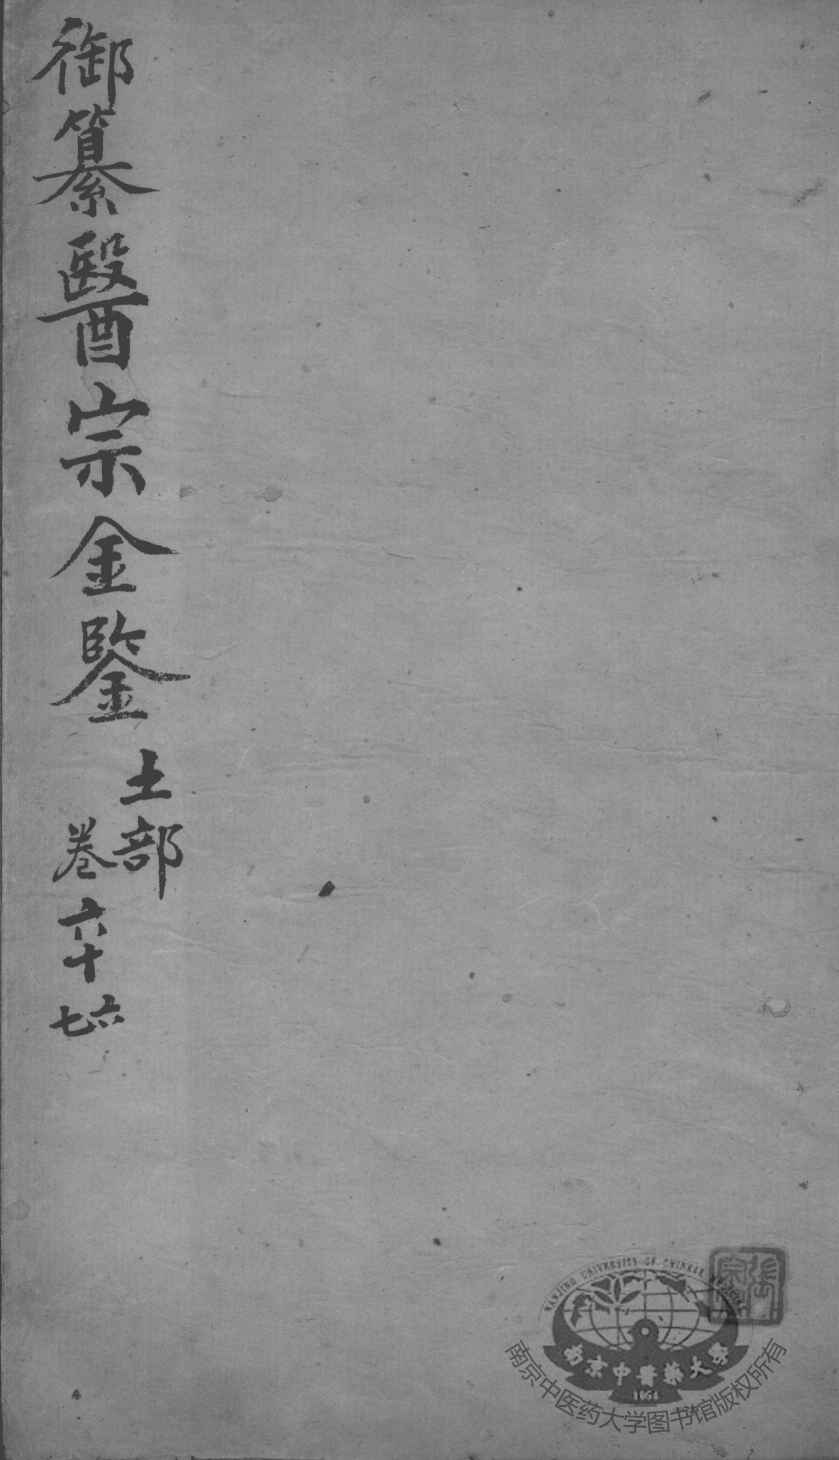 御纂醫宗金鑒
土部
卷六十六七
NANJING UNIVERSITY OF CHINESE
南京中醫藥大學
1954
南京中医药大学图书馆版权所有